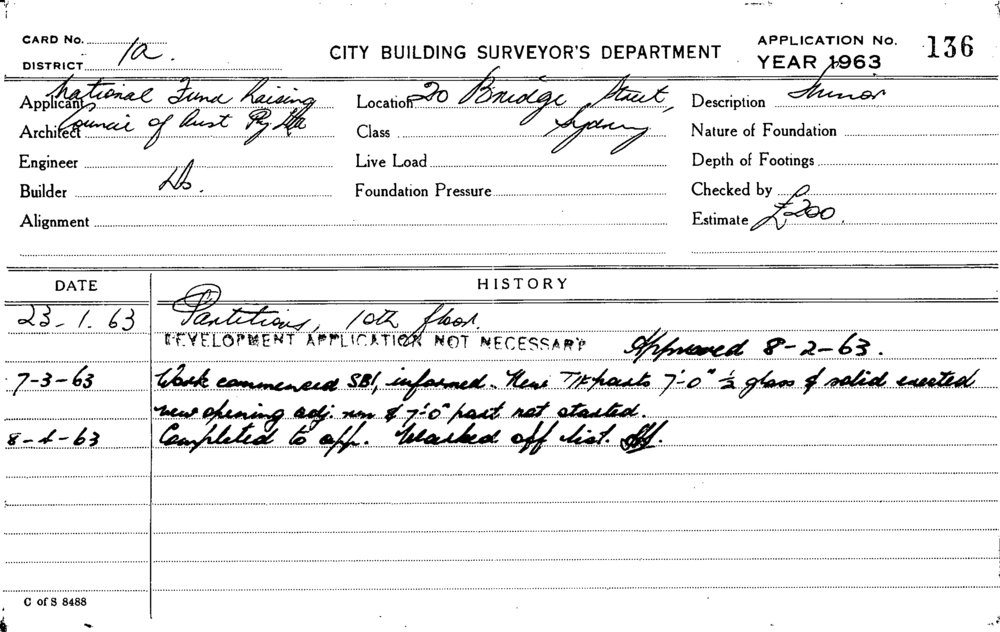 CARD No.
DISTRICT 1a.
CITY BUILDING SURVEYOR'S DEPARTMENT
APPLICATION No. 136
YEAR 1963
Applicant National Fund Raising
Architect Council of Aust Pty Ltd
Engineer
Builder Do.
Alignment
Location 20 Bridge Street,
Class Sydney
Live Load
Foundation Pressure
Description Minor
Nature of Foundation
Depth of Footings
Checked by
Estimate £200.
DATE HISTORY
23-1.63 Partitions, 10th floor.
DEVELOPMENT APPLICATION NOT NECESSARY Approved 8-2-63.
7-3-63 Work commenced SBI, informed. New T/F parts 7'-0" ½ glass & solid erected
new opening adj. rm & 7'-0" part not started.
8-4-63 Completed to app. Marked off list.
C of S 8488